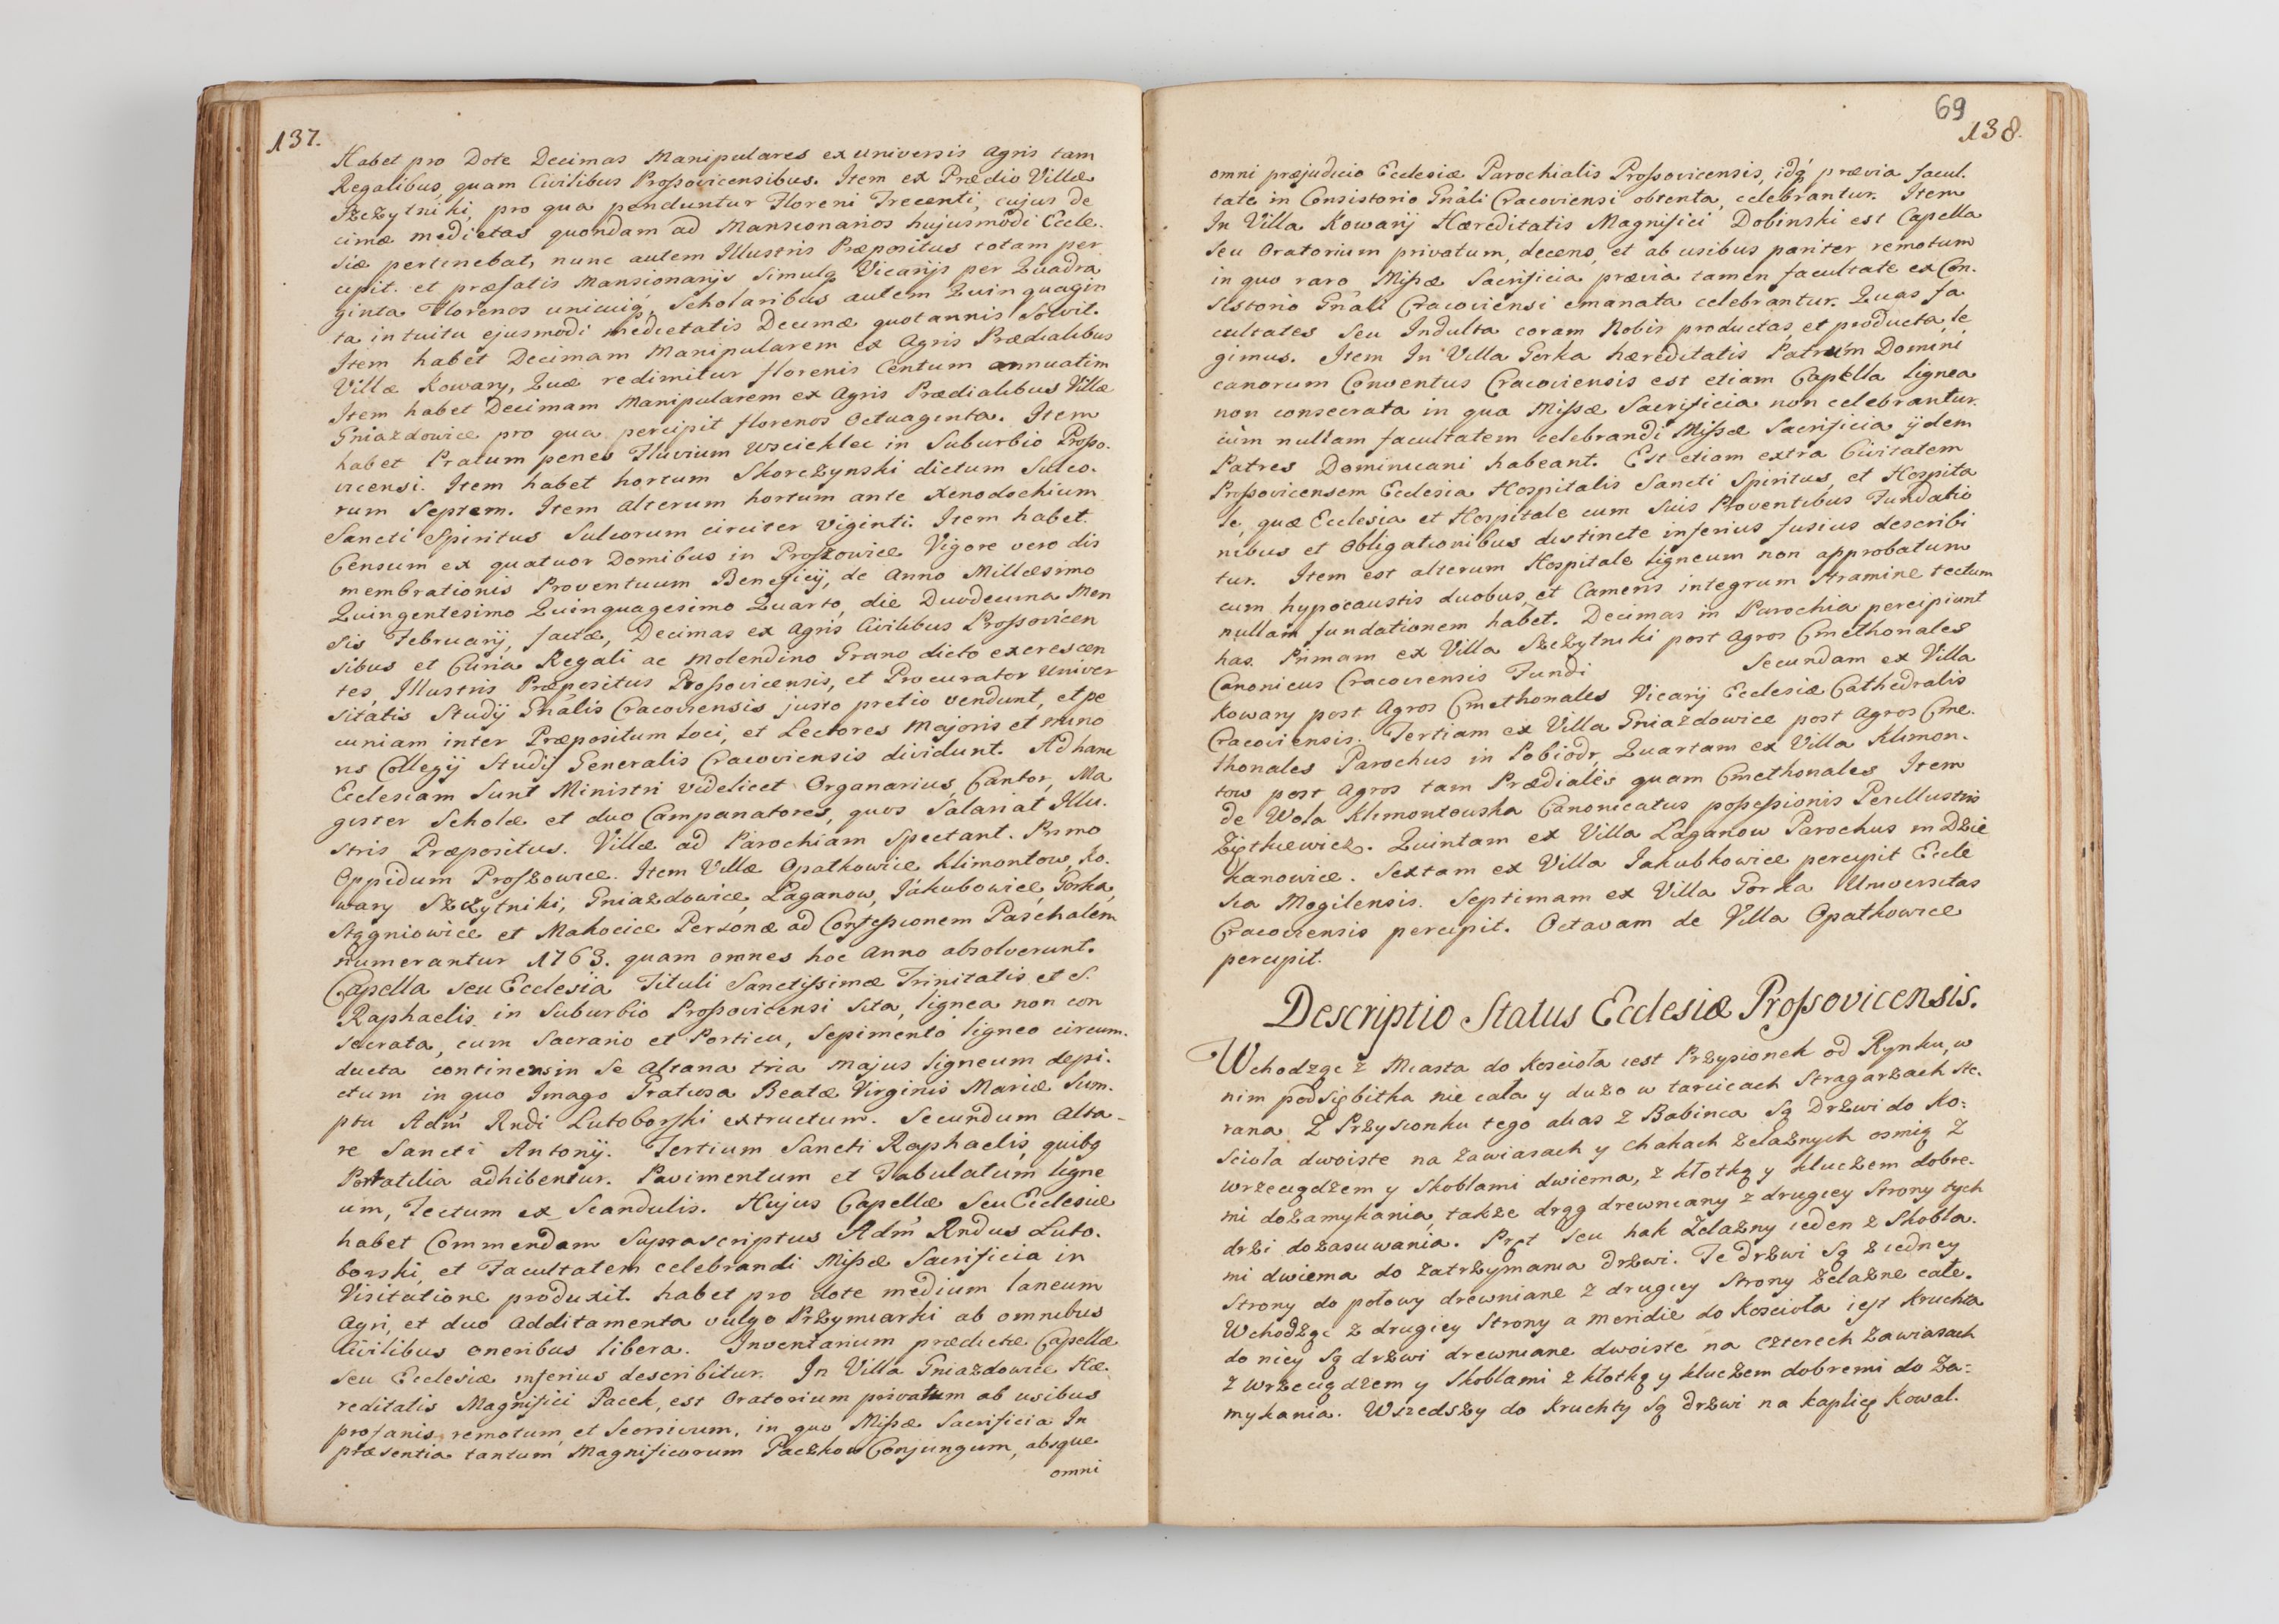 137.
Habet pro Dote Decimas Manipulares ex universis agris tam
Regalibus, quam Civilibus Proßovicensibus. Item ex Prædio Villæ
Szczytniki, pro qua penduntur Floreni Trecenti, cujus de
cimæ medietas quondam ad Mansconarios hujusmodi Eccle.
siæ pertinebat, nunc autem Illustris Præpositus totam per
cipit. et præfatis Mansionarijs simulq Vicarijs per Quadra
ginta Florenos unicuiq, Scholaribus autem Quinquagin
ta intuitu ejusmodi medietatis Decimæ quotannis Solvit.
Item habet Decimam Manipularem ex Agris Prædialibus
Villæ Kowary, Quæ redimitur florenis Centum annuatim
Item habet Decimam Manipularem ex Agris Prædialibus Villæ
Gniazdowice pro qua percipit florenos Octuaginta. Item
habet Pratum penes Fluvium Wscieklec in Suburbio Proßo.
vicensi. Item habet hortum Skorczynski dictum Sulco.
rum Septem. Item alterum hortum ante Xenodochium
Sancti Spiritus Sulcorum circiter Viginti. Item habet
Censum ex quatuor Domibus in Proszowice Vigore vero dis
membrationis Proventuum Beneficij, de Anno Millesimo
Quingentesimo Quinquagesimo Quarto, die Duodecima Men
sis Februarij, factæ, Decimas ex Agris Civilibus Proßovicen
sibus et Curia Regali ac Molendino Grano dicto excrescen
tes, Illustris Præpositus Proßovicensis, et Procurator Univer
sitatis Studij Gnalis Cracoviensis justo pretio vendunt, et pe
cuniam inter Præpositum loci, et Lectores Majoris et mino
ris Collegij Studij Generalis Cracoviensis dividunt. Ad hanc
Ecclesiam Sunt Ministri videlicet Organarius, Cantor, Ma
gister Scholæ et duo Campanatores, quos Salariat Illu.
stris Præpositus. Villæ ad Parochiam Spectant. Primo
Oppidum Proszowice. Item Villæ Opatkowice, Klimontow, Ko.
wary Szczytniki, Gniazdowice, Łaganow, Jakubowice, Gorka,
Stągniowice et Makocice Personæ ad Confeßionem Paschalem
numerantur 1763. quam omnes hoc Anno absolverunt.
Capella seu Ecclesia Tituli Sanctißimæ Trinitatis et S.
Raphaelis in Suburbio Proßovicensi Sita, lignea non con
secrata, cum Sacrario et Porticu, Sepimento ligneo circum.
ducta continens in se Altana tria majus ligneum depi.
ctum in quo Imago Gratiosa Beatæ Virginis Mariæ Sum.
ptu Adm Rndi Lutoborski extructum. Secundum Alta-
re Sancti Antonij. Tertium Sancti Raphaelis, quibq
Portatilia adhibentur. Pavimentum et Tabulatum ligne
um, Tectum ex Scandulis. Hujus Capellæ Seu Ecclesiæ
habet Commendam Suprascriptus Adm Rndus Luto.
borski, et Facultatem celebrandi Mißæ Sacrificia in
Visitatione produxit. habet pro dote medium laneum
Agri, et duo Additamenta vulgo Przymiarki ab omnibus
Civilibus oneribus libera. Inventarium prædictæ Capellæ
Seu Ecclesiæ inferius describitur. In Villa Gniazdowice Hæ.
reditatis Magnifici Pacek, est Oratorium privatum ab usibus
profanis remotum et Seorsivum, in quo Mißæ Sacrificia In
præsentia tantum Magnificorum Paczkow Conjungum, absque
omni
69
138.
omni præjudicio Ecclesiæ Parochialis Proßovicensis, idq prævia facul.
tate in Consistorio Gnali Cracoviensi obtenta, celebrantur. Item
In Villa Kowarij Hæreditatis Magnifici Dobinski est Capella
seu Oratorium privatum, decens, et ab usibus pariter remotum
in quo raro Mißæ Sacrificia prævia tamen facultate ex Con.
sistorio Gnali Cracoviensi emanata celebrantur. Quas fa
cultates Seu Indulta coram Nobis productas, et producta le
gimus. Item In Villa Gorka hæreditatis Patrum Domini
canorum Conventus Cracoviensis est etiam Capella lignea
non consecrata in qua Mißæ Sacrificia non celebrantur.
cùm nullam facultatem celebrandi Mißæ Sacrificia ijdem
Patres Dominicani habeant. Est etiam extra Civitatem
Proßovicensem Ecclesia Hospitalis Sancti Spiritus, et Hospita
le, quæ Ecclesia et Hospitale cum Suis Proventibus Fundatio
nibus et Obligationibus distincte inferius fusius describi
tur. Item est alterum Hospitale ligneum non approbatum
cum hypocaustis duobus, et Cameris integrum Stramine tectum
nullam fundationem habet. Decimas in Parochia percipiunt
has. Primam ex Villa Szczytniki post agros Cmethonales
Canonicus Cracoviensis Fundi Secundam ex Villa
Kowary post Agros Cmethonales Vicarij Ecclesiæ Cathedralis
Cracoviensis. Tertiam ex Villa Gniazdowice post Agros Cme.
thonales Parochus in Pobiodr, Quartam ex Villa Klimon.
tow post Agros tam Prædiales quam Cmethonales Item
de Wola Klimontowska Canonicatus poßeßionis Perillustris
Ziętkiewicz. Quintam ex Villa Łaganow Parochus in Dzie
kanowice. Sextam ex Villa Jakubkowice percipit Eccle
sia Mogilensis. Septimam ex Villa Gorka Universitas
Cracoviensis percipit. Octavam de Villa Opatkowice
percipit.
Descriptio Status Ecclesiæ Proßovicensis.
Wchodząc z Miasta do Kosciola iest Przysionek od Rynku, w
nim podsiębitka nie cała y dużo w tarcicach Stragarzach ste.
rana Z Przysionku tego alias z Babinca Są Drzwi do Ko:
sciola dwoiste na zawiasach y chakach żelaznych osmią z
wrzeciądzem y Skoblami dwiema, z kłotką y kluczem dobre.
mi dozamykania, także drąg drewniany z drugiey Strony tych
drzi dozasuwania. Pręt Seu hak Żelazny ieden z Skobla.
mi dwiema do zatrzymania drzwi. Te drzwi Są z iedney
Strony do połowy drewniane z drugiey Strony żelazne całe.
Wchodząc z drugiey Strony a meridie do Kościoła iest Kruchta
do niey Są drzwi drewniane dwoiste na czterech zawiasach
z wrzeciądzem y Skoblami z kłotką y kluczem dobremi do za:
mykania. Wszedszy do Kruchty Są drzwi na kaplicę Kowal.